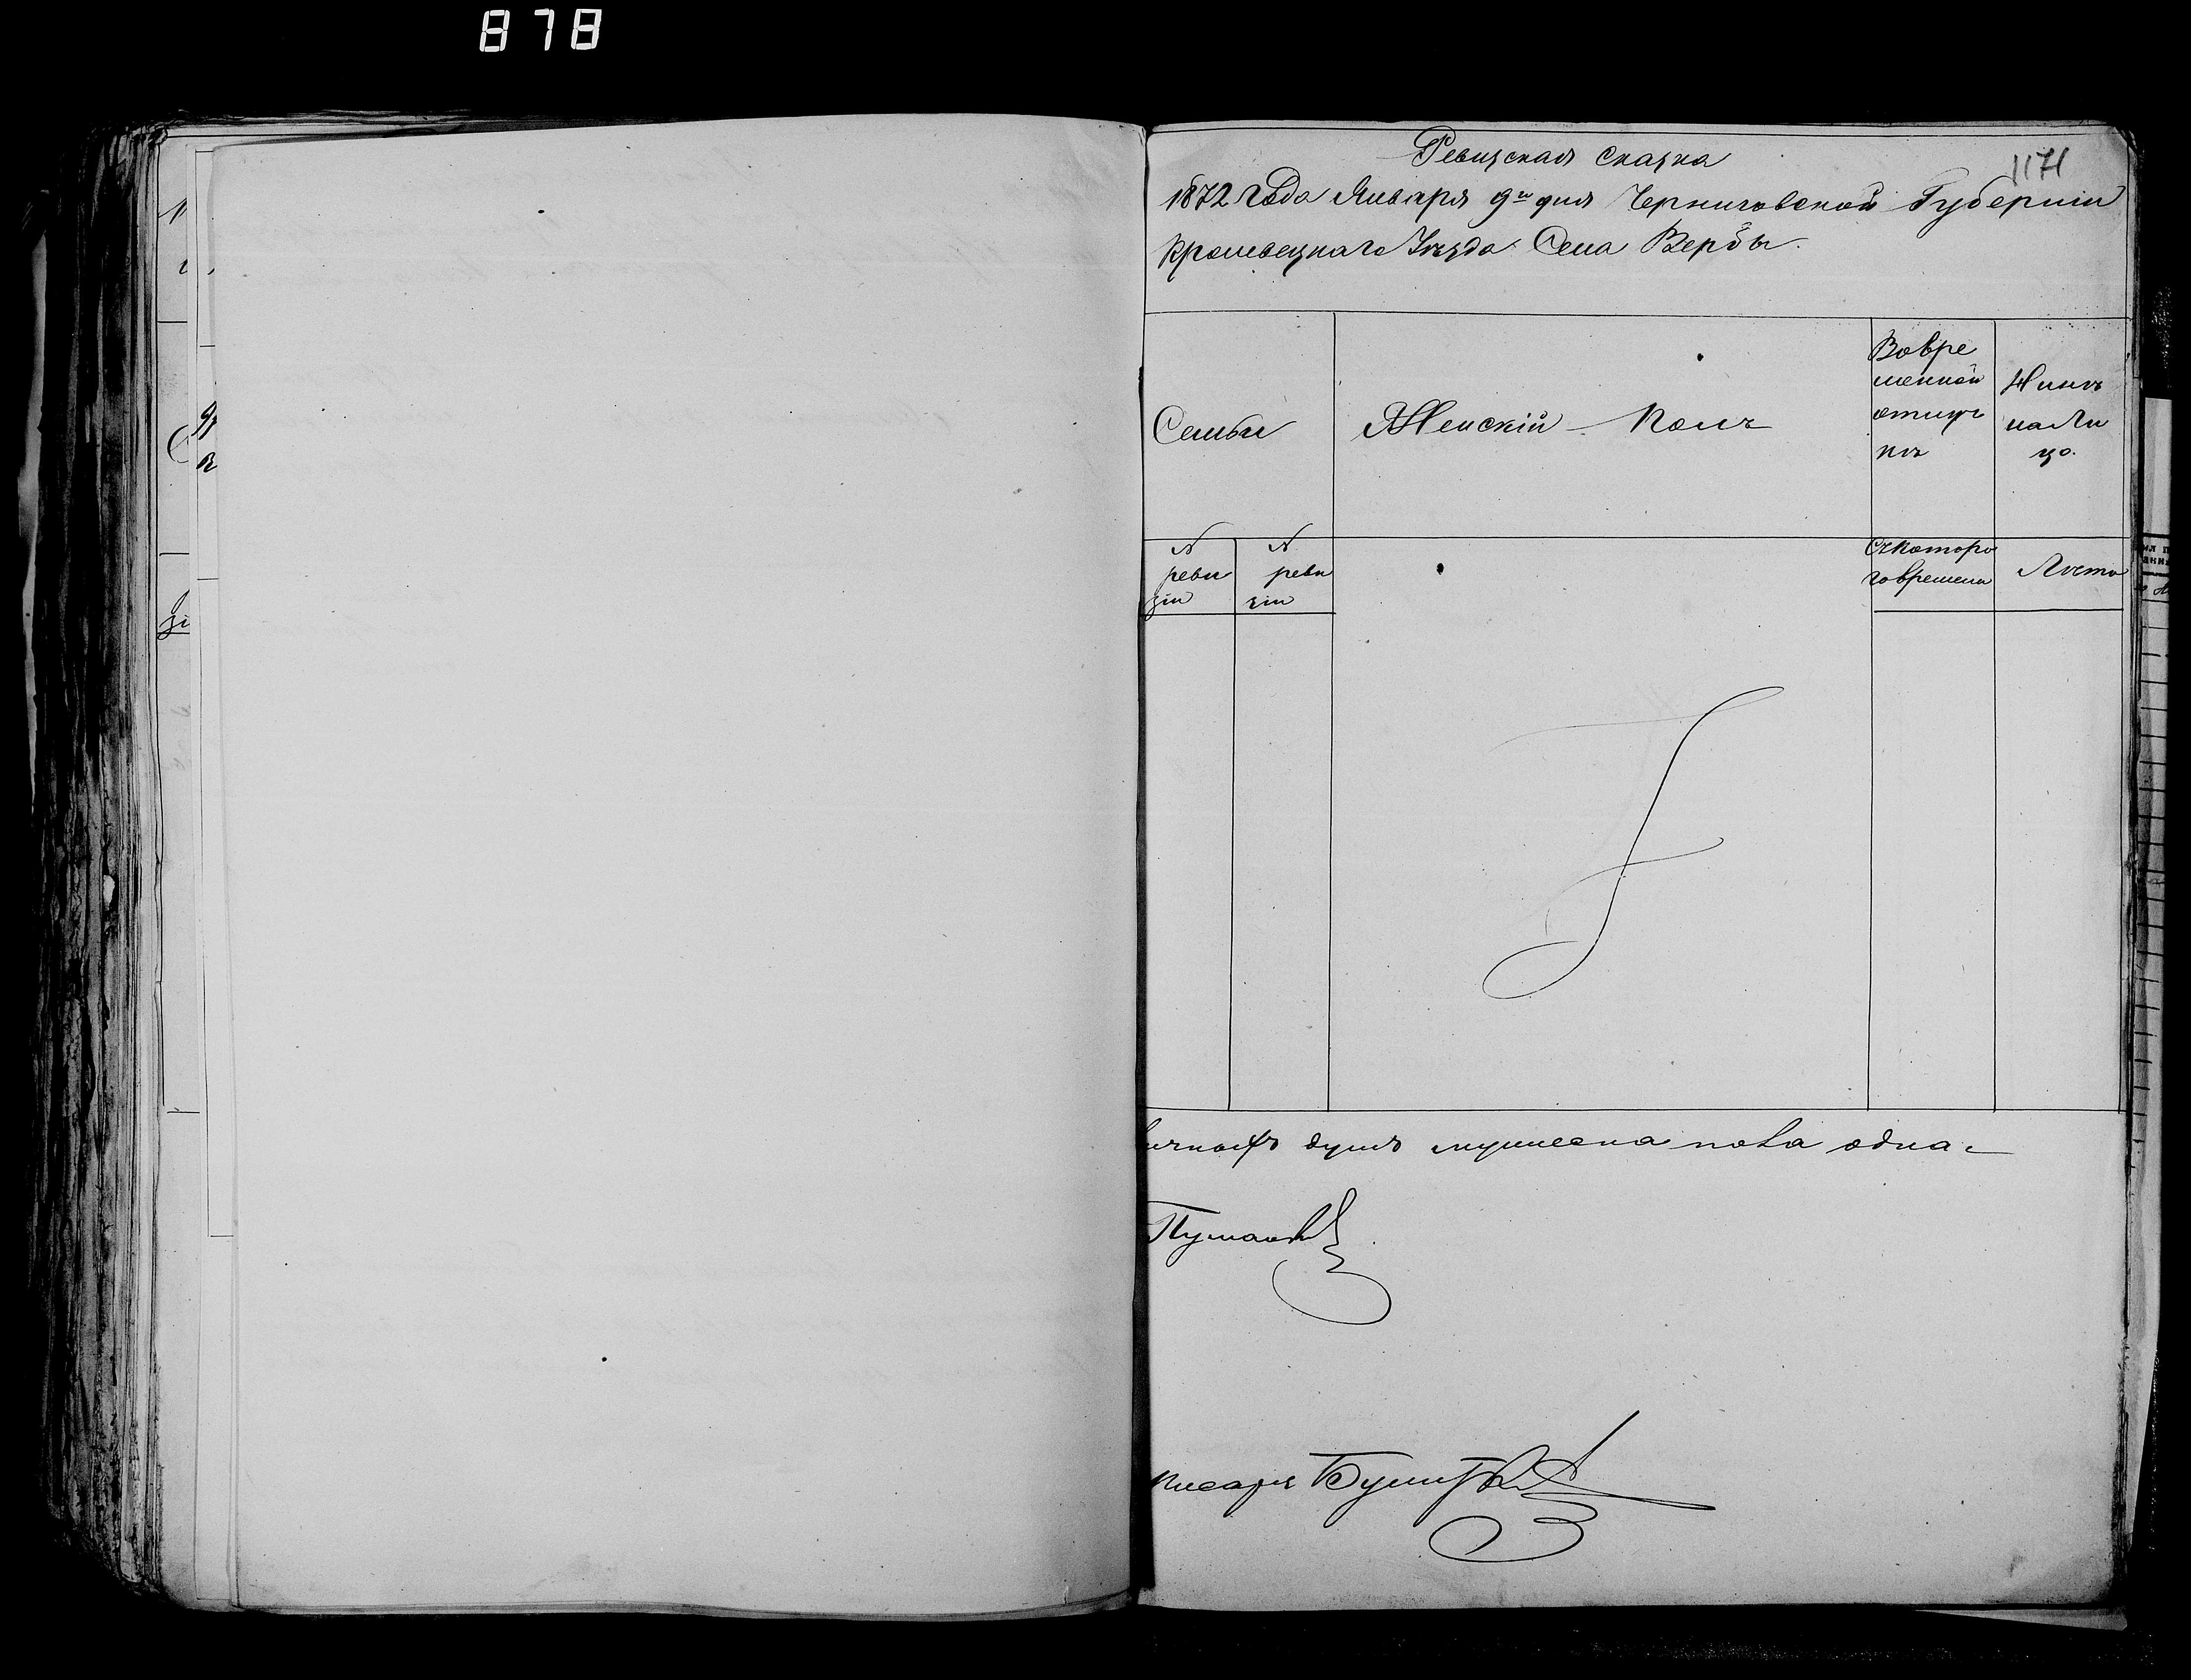 878
1171
Ревизская сказка
1872 года Января 9го дня Черниговской Губерніи
Кролевецкаго Уѣзда Села Вербы.
Семьи
Женскій Полъ
Вовре
менной
отлуч
кѣ
Нынѣ
на Ли
цо.
№
реви
зіи
№
реви
зіи
Съкоторо
говремени
Лѣта
душъ мужеска пола одна
писарь